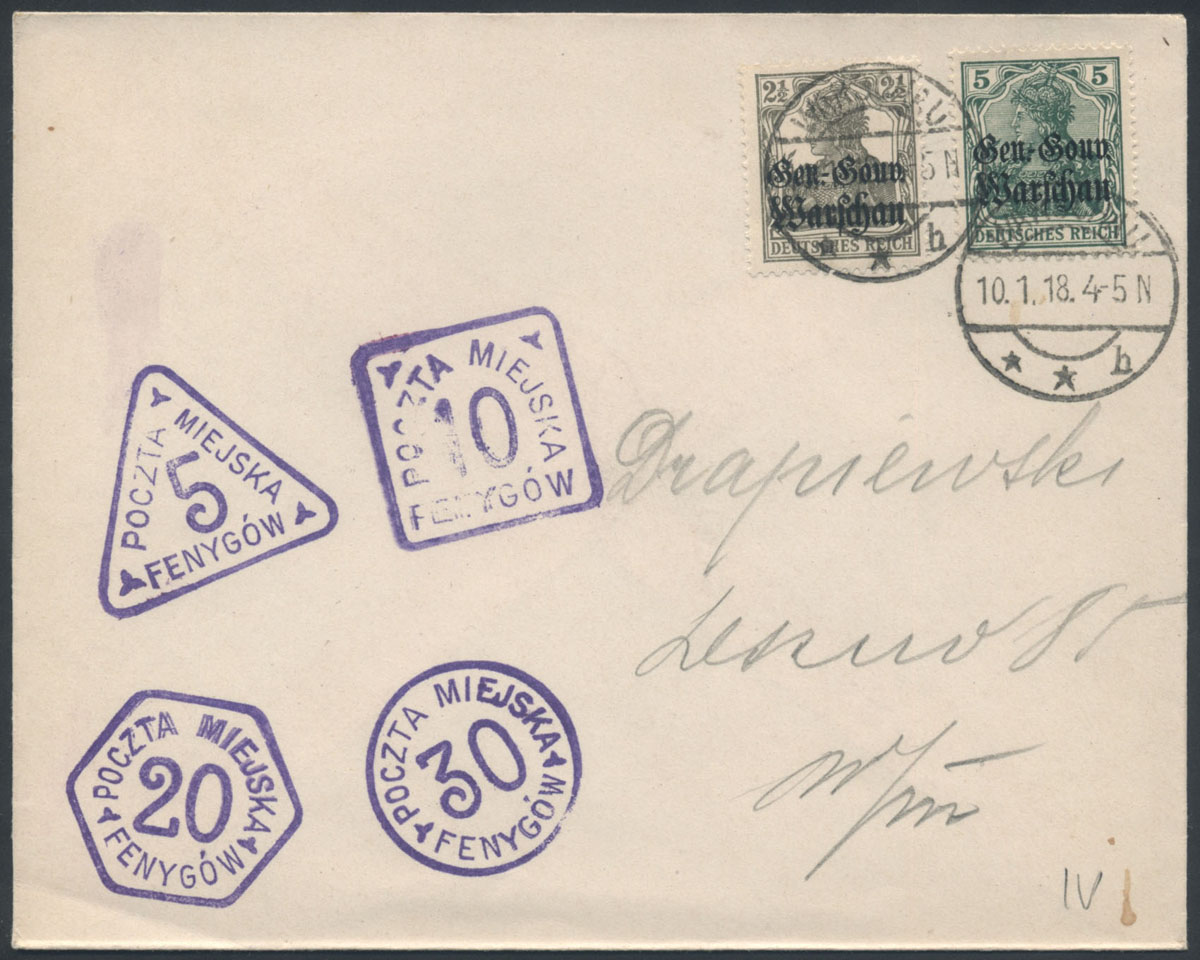 2½ 2½
Gen.-Gouv.
Warschau
DEUTSCHES REICH
5 5
Gen.-Gouv.
Warschau
DEUTSCHES REICH
5 N
* * h
10.1.18.4-5 N
* * h
POCZTA MIEJSKA
5
FENYGÓW
POCZTA MIEJSKA
10
FENYGÓW
POCZTA MIEJSKA
20
FENYGÓW
POCZTA MIEJSKA
30
FENYGÓW
Drapiewski
IV